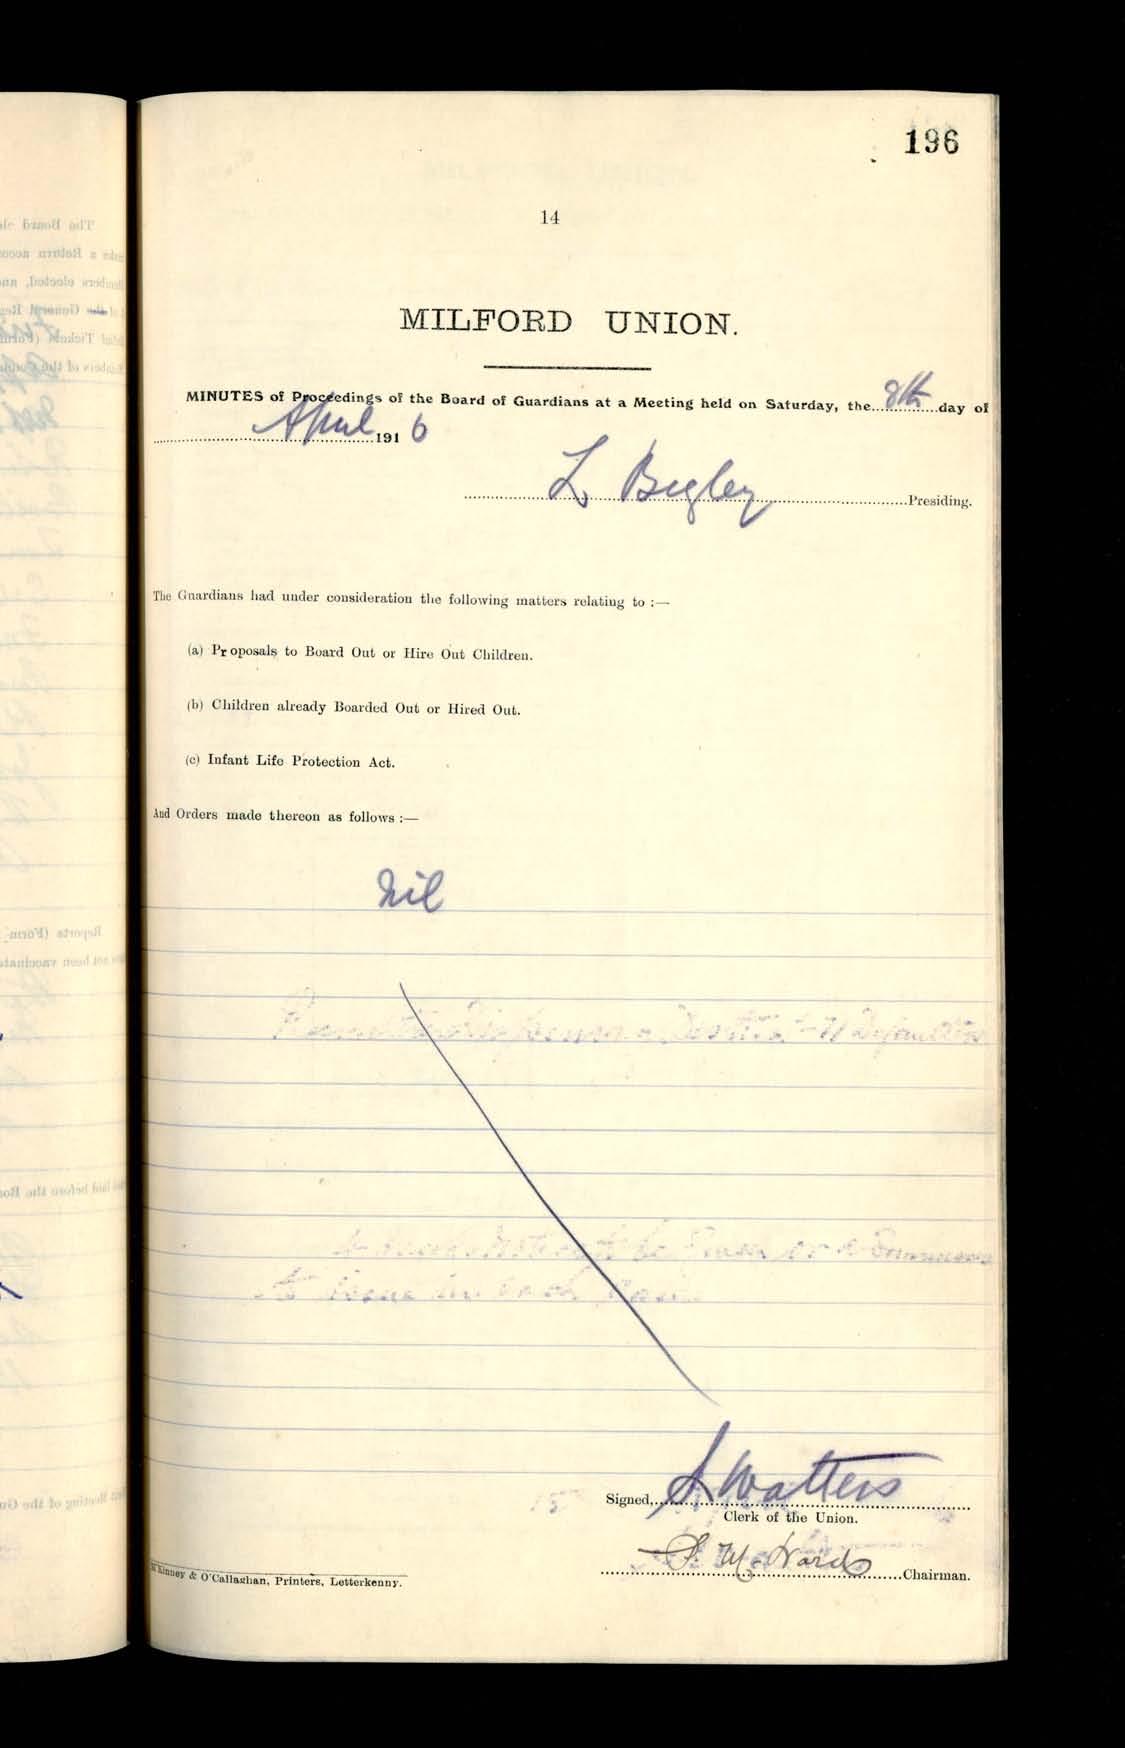 196
14
MILFORD UNION.
MINUTES of Proceedings of the Board of Guardians at a Meeting held on Saturday, the 8th day of
April 1916
L Begley Presiding.
The Guardians had under consideration the following matters relating to :—
(a) Proposals to Board Out or Hire Out Children.
(b) Children already Boarded Out or Hired Out.
(c) Infant Life Protection Act.
And Orders made thereon as follows :—
Nil
Signed, S Watters
Clerk of the Union.
Chairman.
M'Kinney & O'Callaghan, Printers, Letterkenny.